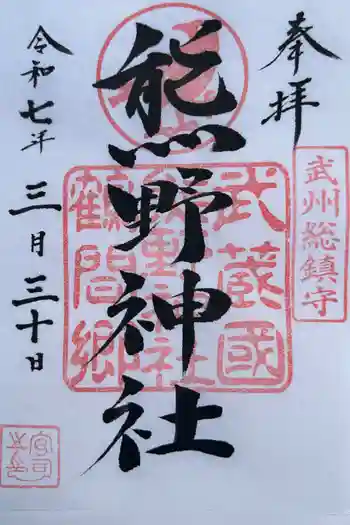 奉拝
武州総鎮守
熊野神社
武蔵國
熊野神社
鶴間郷
令和七年
三月三十日